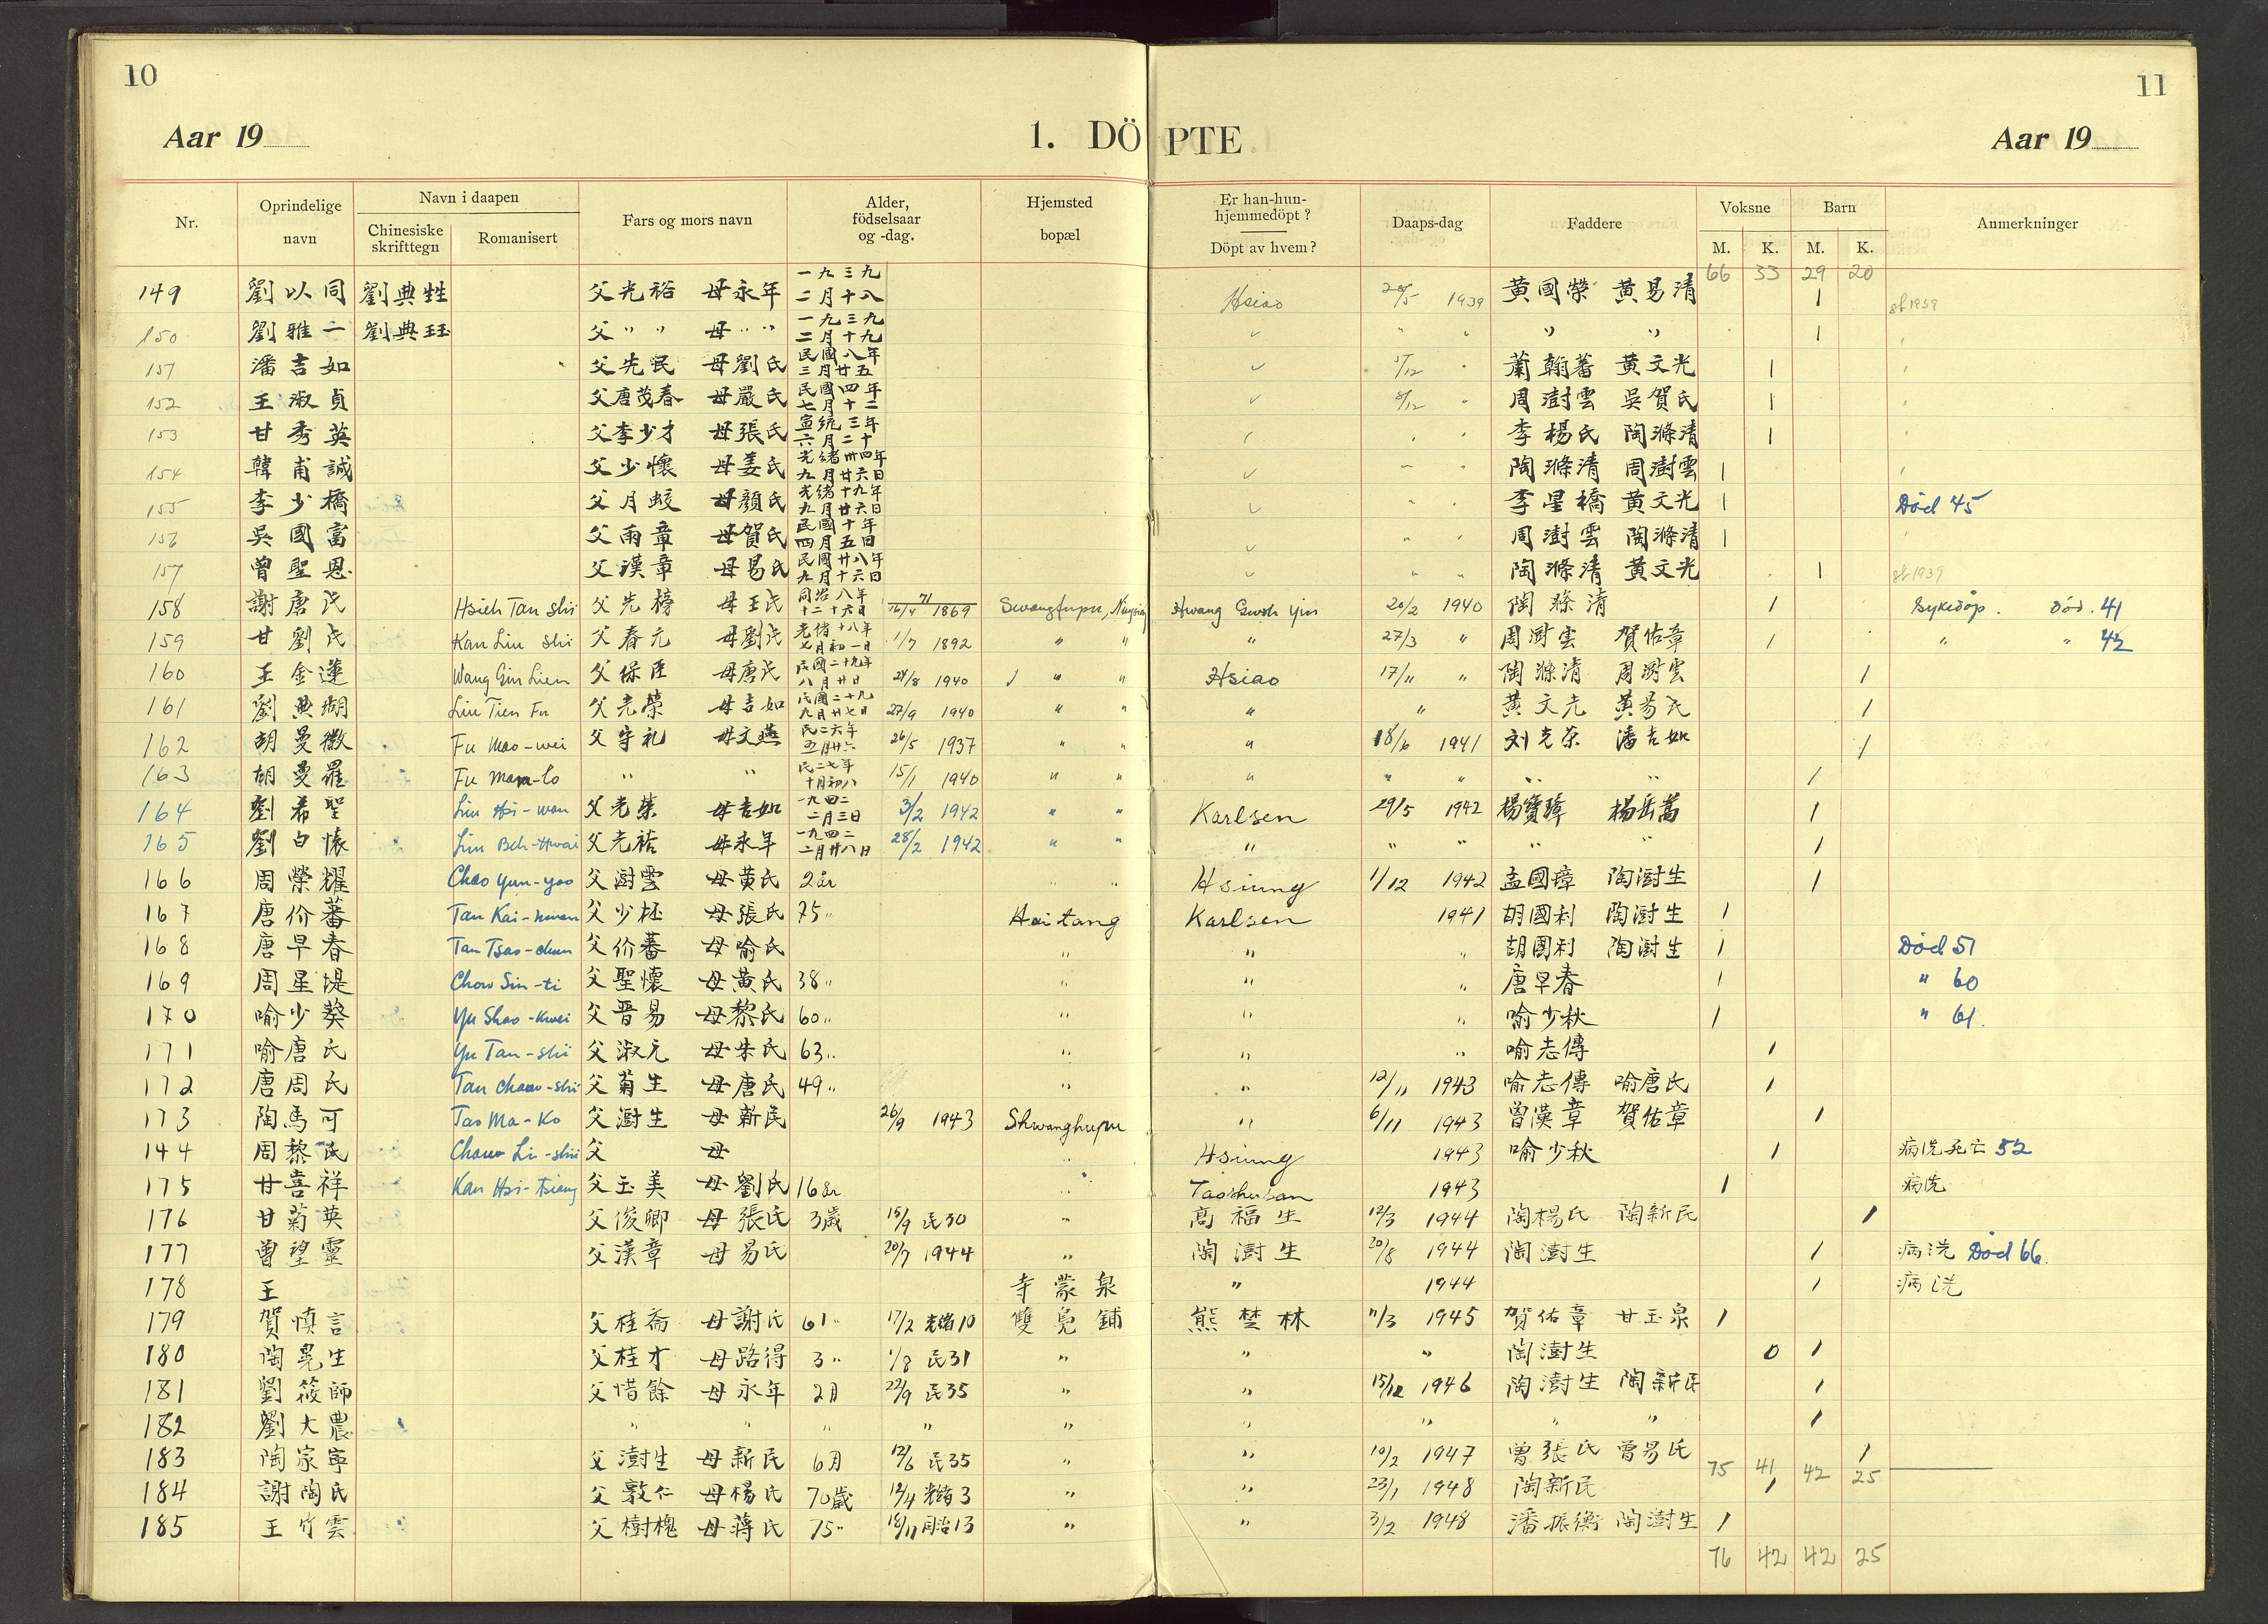 10
11
Aar 19
1. DÖPTE
Aar 19
Nr. Oprindelige navn Navn i daapen Chinesiske skrifttegn Romanisert Fars og mors navn Alder, födselsaar og -dag. Hjemsted bopæl Er han-hun-hjemmedöpt? Döpt av hvem? Daaps-dag Faddere Voksne M. K. Barn M. K. Anmerkninger
66 33 29 20
149 劉以同 劉典甡 父光裕 母永年 一九三九 二月十八 Hsiao 1939 黃國榮 黃易清 1
150 劉雅一 劉典玨 父 〃 〃 母 〃 〃 一九三九 二月十九 〃 〃 1
151 潘吉如 父先民 母劉氏 民國八年 三月廿五 5/12 蕭翰蕃 黃文光 1
152 王淑貞 父唐茂春 母嚴氏 民國四年 七月十二 8/12 周澍雲 吳賀氏 1
153 甘秀英 父李少才 母張氏 宣統三年 六月二十 李楊氏 陶滌清 1
154 韓甫誠 父少懷 母姜氏 光緒卅四年 九月廿六日 陶滌清 周澍雲 1
155 李少橋 父月蛟 母顏氏 光緒十九年 九月廿六日 李星橋 黃文光 1 Død 45
156 吳國富 父雨章 母賀氏 民國十年 四月五日 周澍雲 陶滌清 1
157 曾聖恩 父漢章 母易氏 民國廿八年 九月十六日 陶滌清 黃文光 1
158 謝唐氏 Hsieh Tan shi 父先榜 母王氏 同治八年 十二十六日 1869 Hwang 20/2 1940 陶滌清 1 Sykedøp. Død. 41
159 甘劉氏 Kan Liu shi 父春元 母劉氏 光緒十八年 七月初一日 1/7 1892 〃 〃 〃 27/3 〃 周澍雲 賀佑章 1 〃 〃 42
160 王金蓮 Wang Gin Lien 父保臣 母唐氏 民國二十九年 八月廿日 24/8 1940 〃 〃 Hsiao 17/11 〃 陶滌清 周澍雲 1
161 劉典瑚 Liu Tien Fu 父光榮 母吉如 民國二十九 九月廿七日 27/9 1940 〃 〃 〃 〃 黃文光 黃易氏 1
162 胡曼徽 Fu Mao-wei 父守礼 母文燕 民二六年 五月廿六 26/5 1937 〃 〃 〃 18/6 1941 刘光荣 潘吉如 1
163 胡曼羅 Fu Man-lo 〃 〃 民二七年 十月初八 15/1 1940 〃 〃 〃 〃 〃 〃 〃 1
164 劉希聖 父光榮 母吉如 一九四二 二月三日 3/2 1942 〃 〃 Karlsen 29/5 1942 楊寶璋 楊岳嵩 1
165 劉白懷 Liu Beh-Hwai 父光裕 母永年 一九四二 二月廿八日 28/2 1942 〃 〃 〃 〃 〃 〃 〃 1
166 周榮耀 Chao Yun-yao 父澍雲 母黃氏 2 år 〃 〃 Hsiung 1/12 1942 孟國璋 陶澍生 1
167 唐价蕃 父少柸 母張氏 75 〃 Haitang Karlsen 1941 胡國利 陶澍生 1
168 唐早春 Tan Tsao-chun 父价蕃 母喻氏 〃 〃 〃 胡國利 陶澍生 1 Død 51
169 周星堤 Chow Sin-ti 父聖懷 母黃氏 38 〃 〃 〃 〃 唐早春 1 〃 60
170 喻少葵 Yu Shao-kwei 父晋易 母黎氏 60 〃 〃 〃 〃 喻少秋 1 〃 61.
171 喻唐氏 Yu Tan-shi 父淑元 母朱氏 63 〃 〃 〃 〃 喻志傳 1
172 唐周氏 Tan Chow-shi 父菊生 母唐氏 49 〃 〃 〃 12/11 1943 喻志傳 喻唐氏 1
173 陶馬可 Tao Ma-Ko 父澍生 母新民 26/9 1943 Shwanghupu 〃 6/11 1943 曾漢章 賀佑章 1
144 周黎氏 Chow Li-shi 父 母 〃 Hsiung 1943 喻少秋 1 病洗死亡 52
175 甘喜祥 Kan Hsi-tsiang 父玉美 母劉氏 16 år 〃 1943 1 病洗
176 甘菊英 父俊卿 母張氏 3歲 15/9 民30 〃 高福生 12/3 1944 陶楊氏 陶新民 1
177 曾望靈 父漢章 母易氏 20/7 1944 〃 陶澍生 20/8 1944 陶澍生 1 病洗 Død 66.
178 王 寺蒙泉 〃 1944 1 病洗
179 賀慎言 父桂斋 母謝氏 61 〃 17/2 光緒10 雙鳧鋪 熊埜林 11/3 1945 賀佑章 甘玉泉 1
180 陶晃生 父桂才 母路得 3 〃 1/8 民31 〃 〃 〃 陶澍生 0 1
181 劉筱師 父惜餘 母永年 2月 22/9 民35 〃 〃 15/12 1946 陶澍生 陶新民 1
182 劉大農 〃 〃 〃 〃 〃 〃 〃 〃 〃 1
183 陶家寧 父澍生 母新民 6月 12/6 民35 〃 〃 10/2 1947 曾張氏 曾易氏 1
75 41 42 25
184 謝陶氏 父敦仁 母楊氏 70歲 12/4 光緒3 〃 〃 23/1 1948 陶新民 1
185 王竹雲 父樹槐 母蔣氏 75 〃 18/11 同治13 〃 〃 3/2 1948 潘振衡 陶澍生 1
76 42 42 25